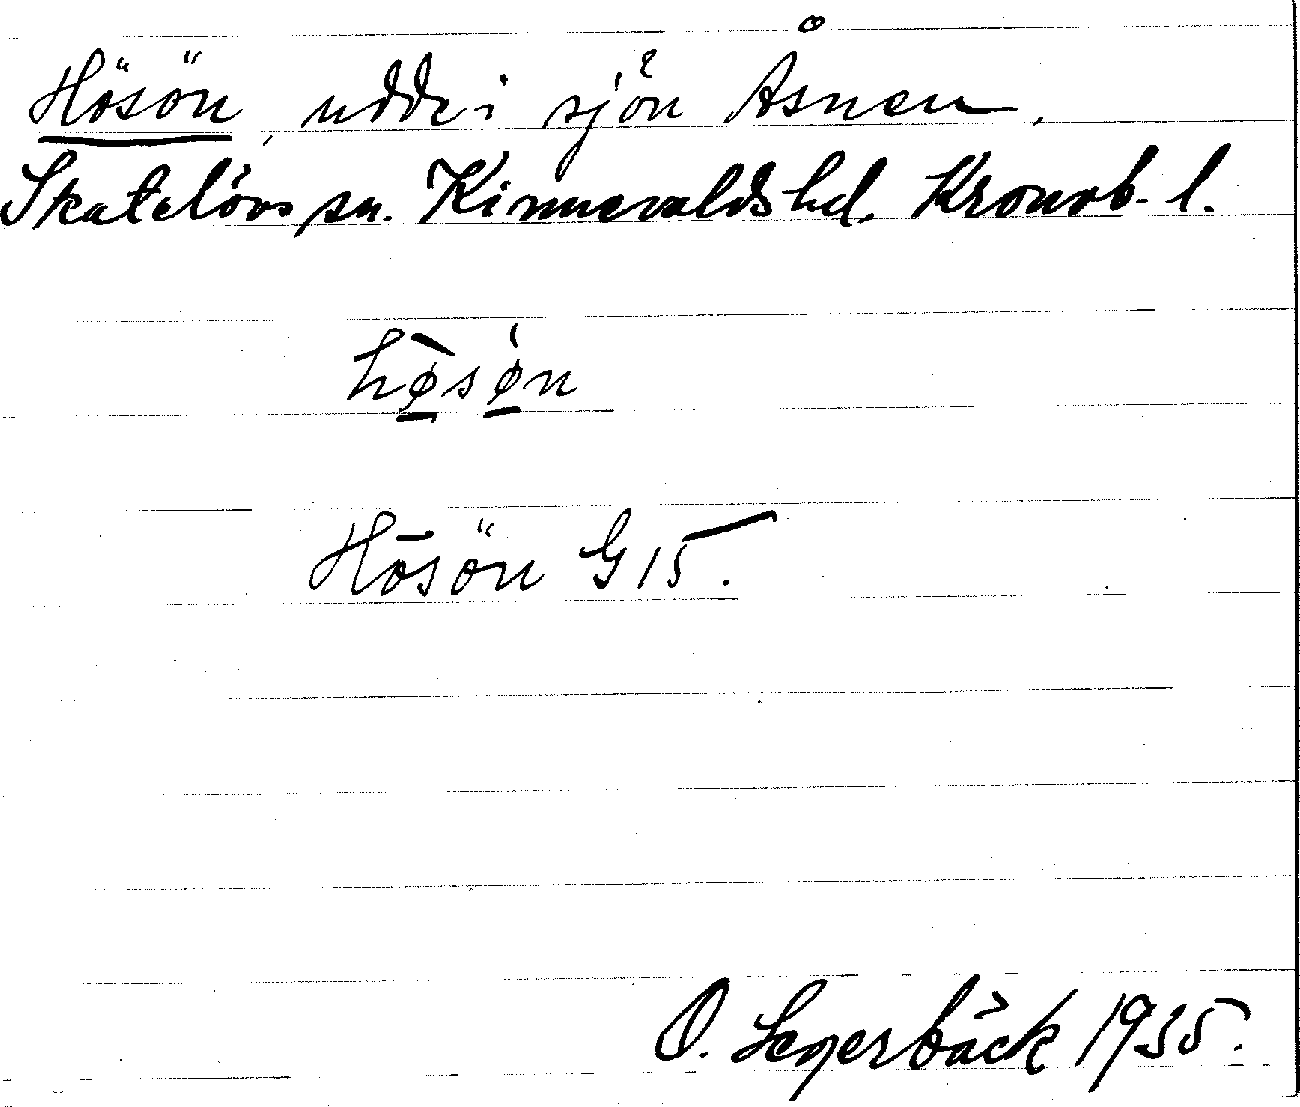 Hösön, udde i sjön Åsnen,
Skatelövs sn. Kinnevalds hd. Kronob. l.
hø̠̀sǿ̠n
Hösön G 15.
O. Segerbäck 1935.